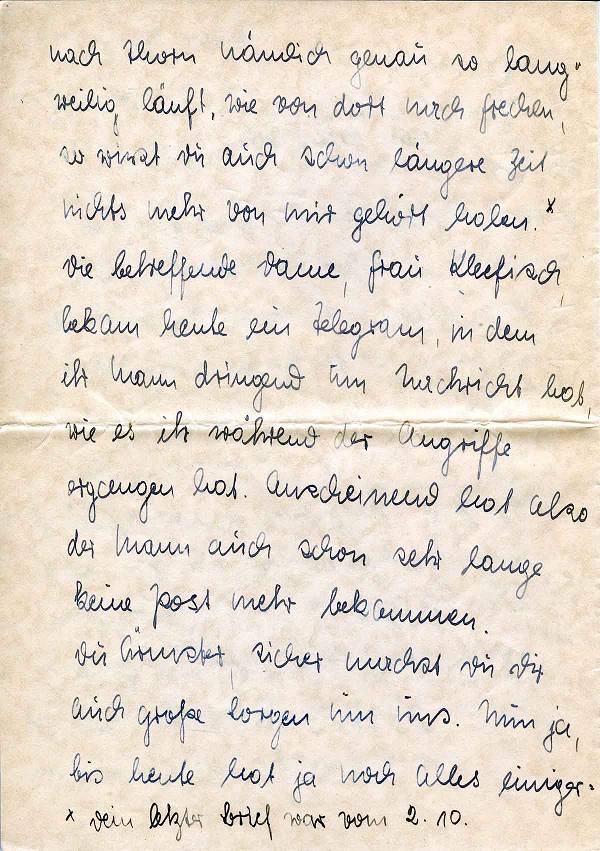 nach Thorn nämlich genau so lang-
weilig läuft, wie von dort nach Frechen,
so wirst du auch schon längere Zeit
nichts mehr von mir gehört haben. x
Die betreffende Dame, Frau Kleefisch,
bekam heute ein Telegram, in dem
ihr Mann dringend um Nachricht bat,
wie es ihr während der Angriffe
ergangen hat. Anscheinend hat also
der Mann auch schon sehr lange
keine Post mehr bekommen.
Du Ärmster, sicher machst du dir
auch große Sorgen um uns. Nun ja,
bis heute hat ja noch Alles einiger-
x Dein letzter Brief war vom 2.10.